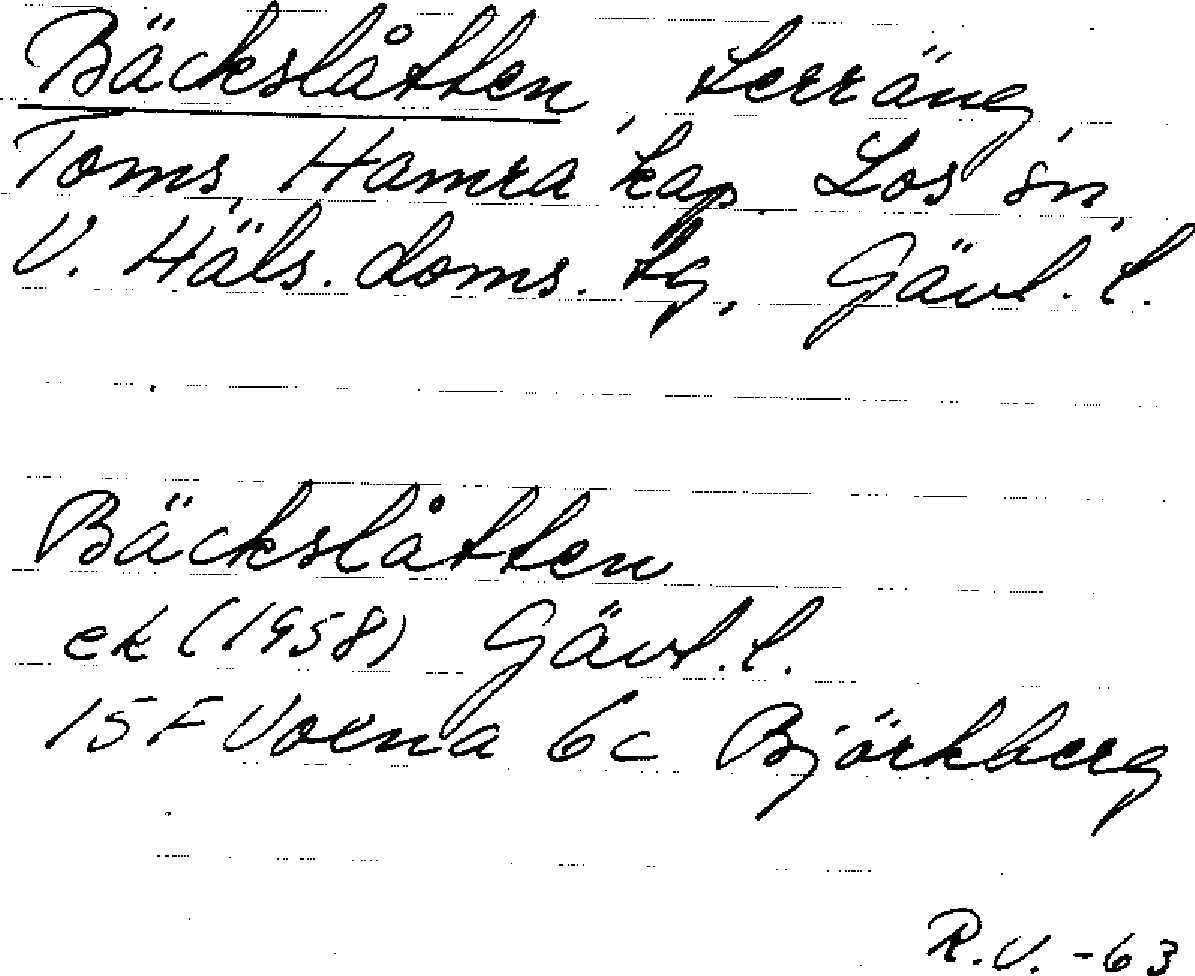 Bäckslåtten, terräng,
Toms, Hamra kap. Los sn,
V. Häls. doms. tg, Gävl. l.
Bäckslåtten
ek (1958) Gävl. l.
15 F Voxna 6c Björkberg
R.V. -63